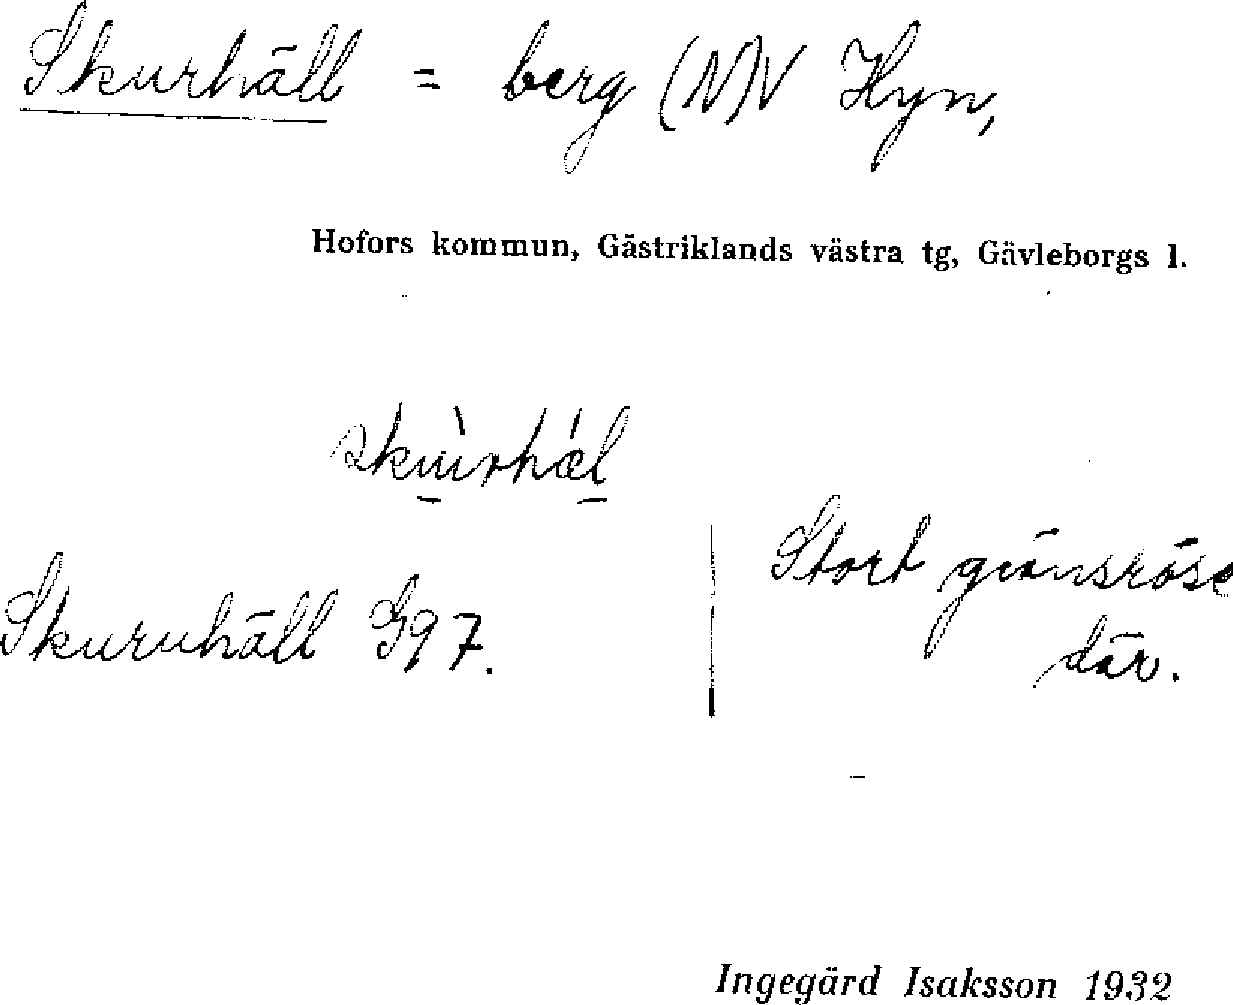 Skurhäll = berg (N)V Hyn,
Hofors kommun, Gästriklands västra tg, Gävleborgs l.
skùrhǽl
Skuruhäll G97.
Stort gränsröse
där.
Ingegärd Isaksson 1932